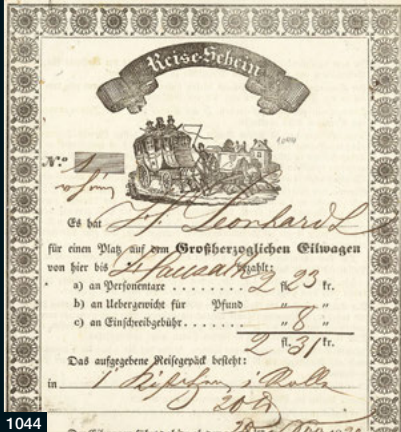 Reise-Schein
N.º 1
Es hat H. Leonhard
für einen Platz auf dem Großherzoglichen Eilwagen
von hier bis bezahlt:
a) an Personentaxe . . . . . . . . 2 fl. 23 kr.
b) an Uebergewicht für Pfund " "
c) an Einschreibgebühr. . . . . . . . " 8 "
2 fl. 31 kr.
Das aufgegebene Reisegepäck besteht:
in 1 Kistchen 1 Rolle
20
1044